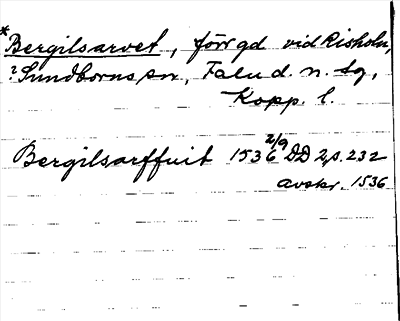 *Bergilsarvet, förr gd vid Risholn,
? Sundborns sn, Falu d. n. tg,
Kopp. l.
Bergilsarffuit 1536 2/9 DD 2, s. 232
avskr. 1536